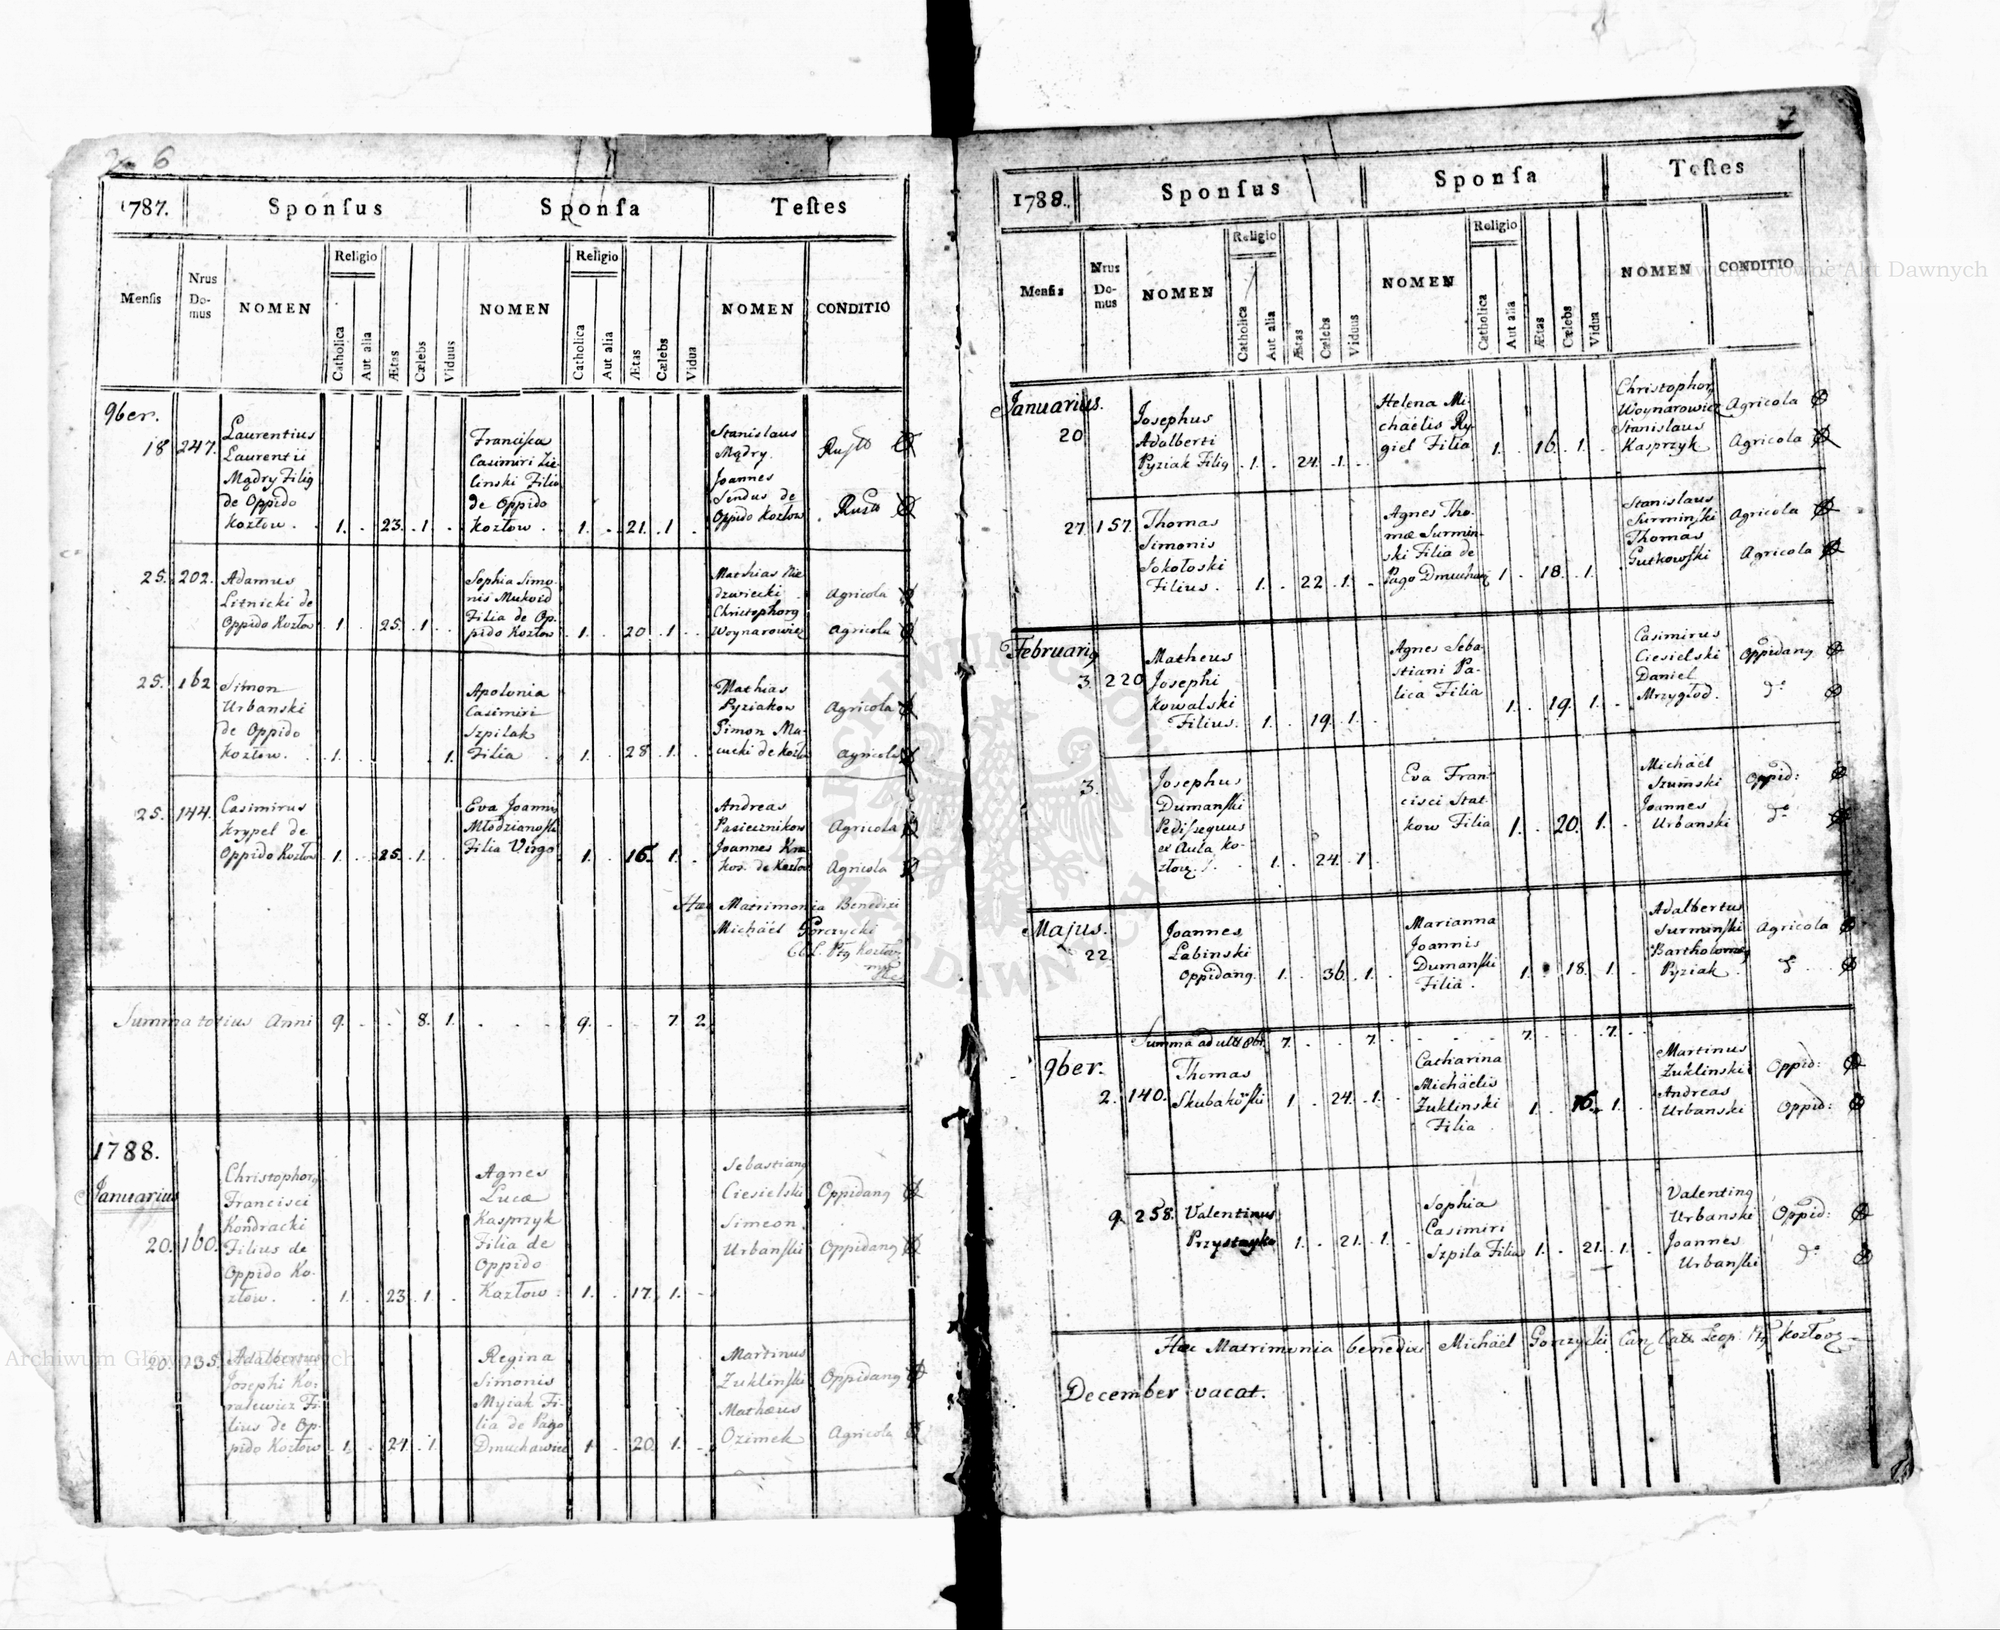 6
1787.
Sponſus
Sponſa
Teſtes
Menſis
Nrus
Do-
mus
NOMEN
Religio
Catholica
Aut alia
Ætas
Cælebs
Viduus
NOMEN
Religio
Catholica
Aut alia
Ætas
Cælebs
Vidua
NOMEN
CONDITIO
9ber.
18 247.
Laurentius
Laurentii
Mądry Filiq
de Oppido
Kozłow. 1. . 23. 1.
Franciſca
Casimiri Zie-
linski Filia
de Oppido
Kozłow. 1. . 21. 1
Stanislaus
Mądry.
Joannes
Sendus de
Oppido Kozłow
25. 202.
Adamus
Litnicki de
Oppido Kozłow 1. 25. 1.
Sophia Simo-
nis Mukoid
Filia de Op-
pido Kozłow 1. . 20. 1.
Mathias Nie-
dzwiecki
Christophorq
Woynarowicz
Agricola
Agricola
25. 162
Simon
Urbanski
de Oppido
Kozłow. 1. 1.
Apolonia
Casimiri
Szpilak
Filia 1. 28. 1.
Mathias
Pyziakow
Simon Ma-
cucki de Kozło
Agricola
Agricola
25. 144.
Casimirus
Krypel de
Oppido Kozłow 1. . 25. 1.
Eva Joannis
Młodzianowſki
Filia Virgo 1. . 16. 1.
Andreas
Pasiecznikow
Joannes Kra-
kow. de Kozłow
Agricola
Agricola
Hæc Matrimonia Benedixi
Michäel Gorczycki
Summa totius Anni 9. . . 8. 1. . . . 9. . . 7. 2
1788.
Januarius
20. 160.
Christophorq
Francisci
Kondracki
Filius de
Oppido Ko-
złow. 1. . 23 1
Agnes
Lucæ
Kasprzyk
Filia de
Oppido
Kazłow. 1. . 17. 1.
Sebastianq
Ciesielski
Simeon
Urbanſki
Oppidanq
Oppidanq
20. 135.
Adalbertus
Josephi Ko-
ralewicz Fi-
lius de Op-
pido Kozłow 1. 24. 1
Regina
Simonis
Myiak Fi-
lia de Pago
Dmuchawiec 1 . 20. 1.
Martinus
Zuklinſki
Mathæus
Ozimek
Oppidanq
Agricola
7
1788.
Sponſus
Sponſa
Teſtes
Menſis
Nrus
Do-
mus
NOMEN
Religio
Catholica
Aut alia
Ætas
Cælebs
Viduus
NOMEN
Religio
Catholica
Aut alia
Ætas
Cælebs
Vidua
NOMEN
CONDITIO
Januarius.
20
Josephus
Adalberti
Pyziak Filiq 1. . 24. 1.
Helena Mi-
chäelis Ry-
giel Filia 1. . 16. 1.
Christophorq
Woynarowicz
Stanislaus
Kasprzyk
Agricola
Agricola
27 157.
Thomas
Simonis
Sokołoski
Filius. 1. . 22. 1.
Agnes Tho-
mæ Surmin-
ski Filia de
Pago 1. 18. 1.
Stanislaus
Surminſki
Thomas
Gutkowſki
Agricola
Agricola
Februariq
3. 220
Matheus
Josephi
Kowalski
Filius. 1. . 19. 1.
Agnes Seba-
stiani Pa-
lica Filia 1. . 19. 1.
Casimirus
Ciesielski
Daniel
Mrzygłod.
Oppidanq
dº
3.
Josephus
Dumanſki
Pediſsequus
ex Aula Ko-
złov. 1. . 24. 1
Eva Fran-
cisci Stat-
kow Filia 1. . 20. 1.
Michäel
Szumski
Joannes
Urbanski
Oppid:
dº
Majus.
22.
Joannes
Łabinski
Oppidanq. 1. . 36. 1.
Marianna
Joannis
Dumanſki
Filia. 1. 18. 1.
Adalbertus
Surminſki
Bartholomeq
Pyziak
Agricola
dº
Summa ad ult 8br. 7. . . 7. . . . 7. . . 7.
9ber.
2. 140.
Thomas
Skubakowſki 1 . 24. 1.
Catharina
Michäelis
Zuklinski
Filia 1. 16. 1.
Martinus
Zuklinski
Andreas
Urbanski
Oppid:
Oppid:
9. 258.
Valentinus
1. . 21. 1.
Sophia
Casimiri
Szpila Filia 1. . 21. 1.
Valentinq
Urbanski
Joannes
Urbanſki
Oppid:
dº
Hæc Matrimonia benedixi Michäel Gorczycki
December vacat.
Archiwum Główne Akt Dawnych